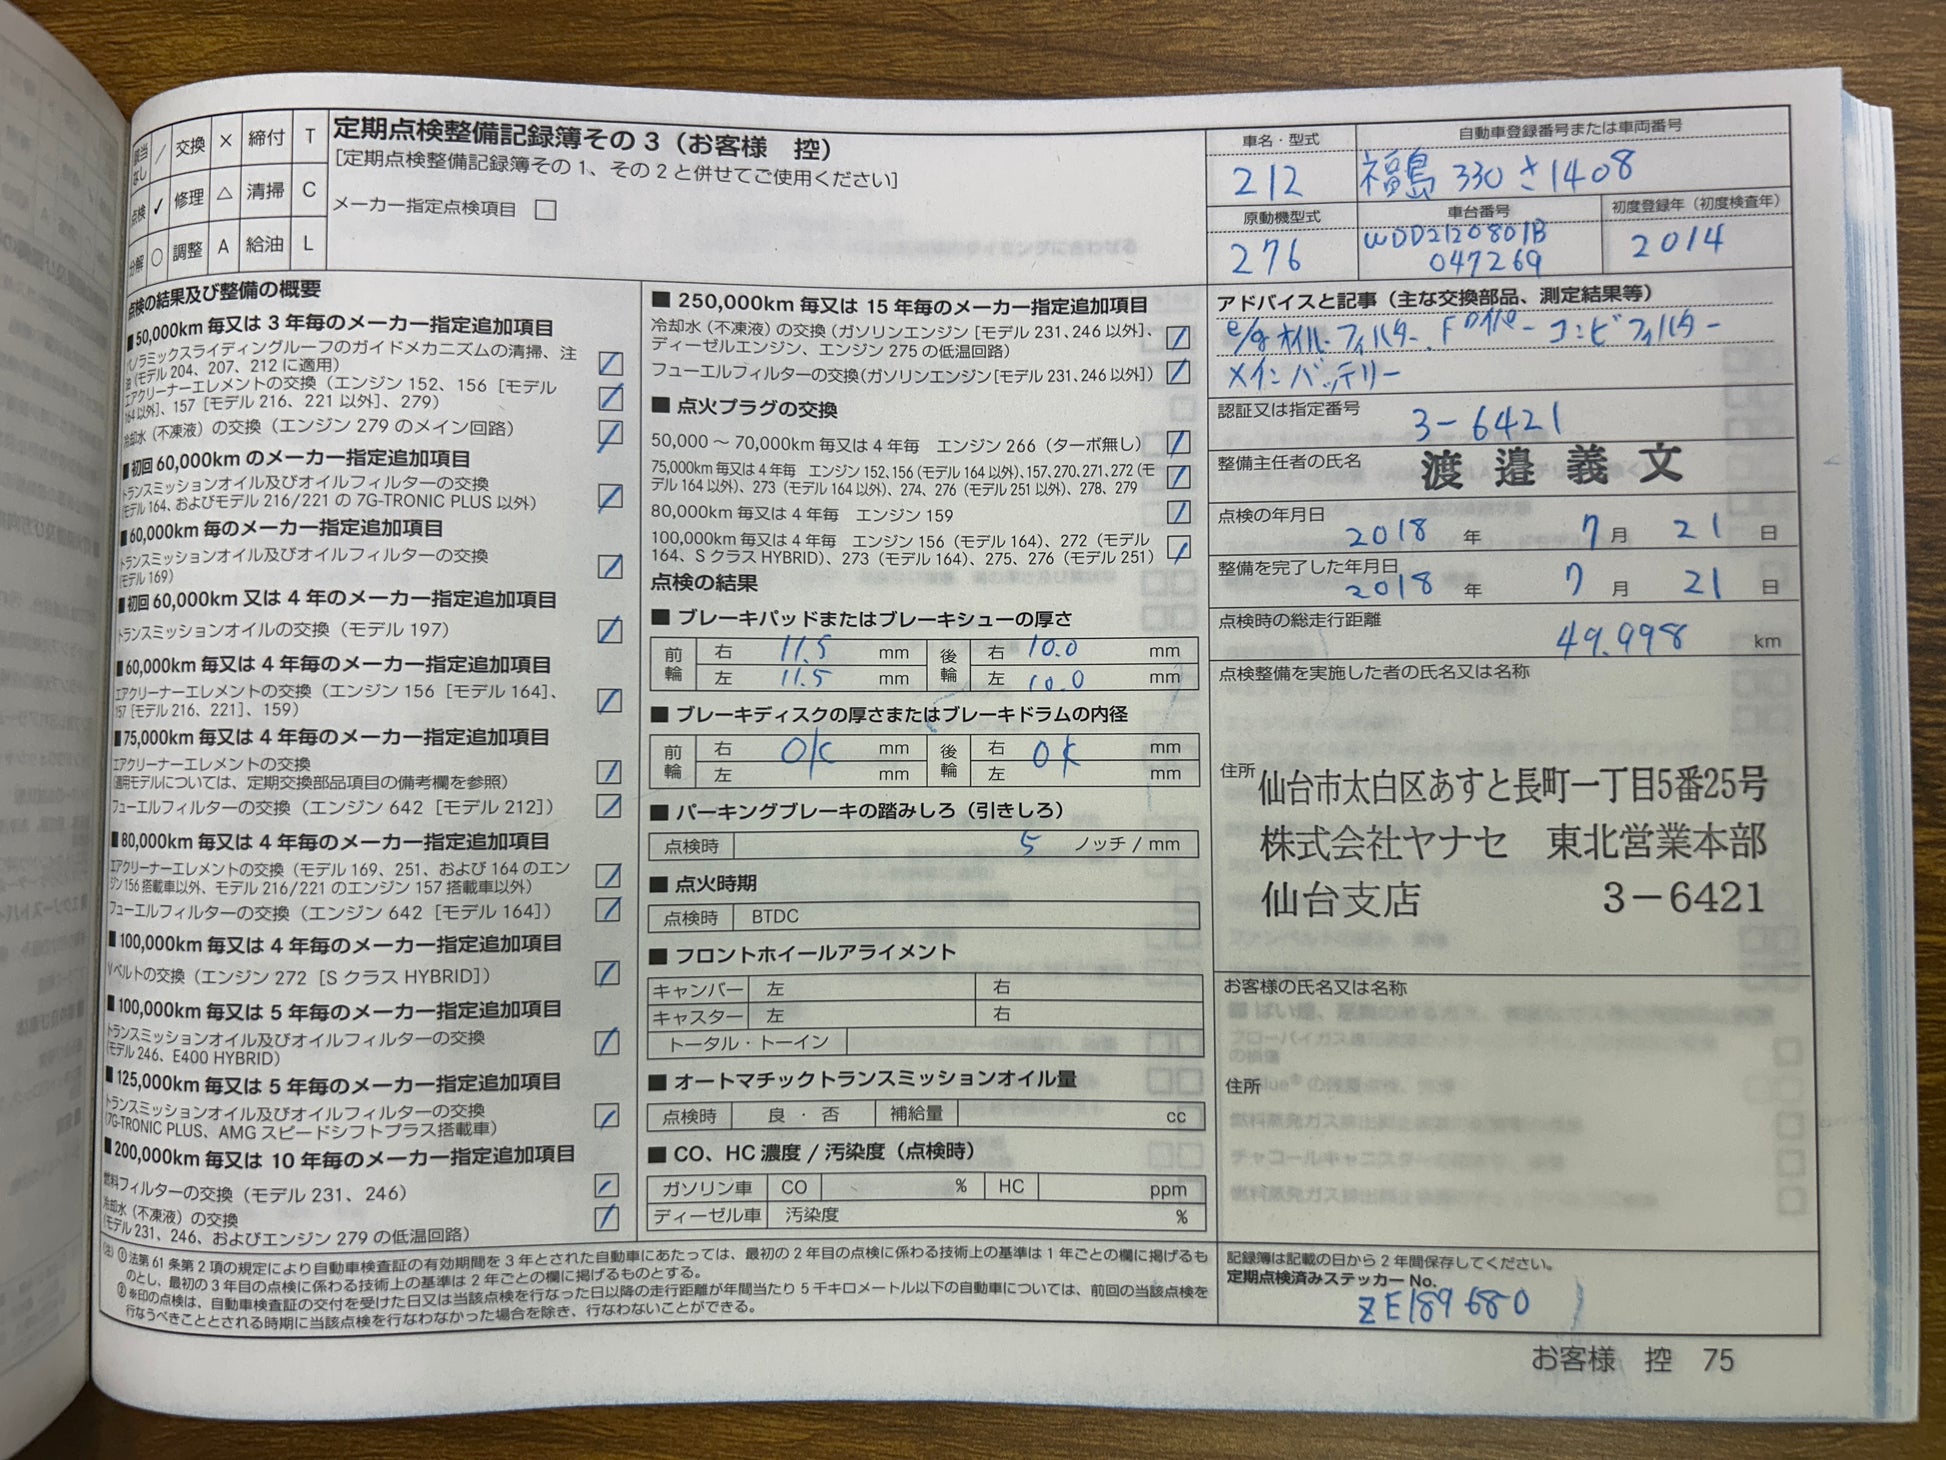 該当なし / 交換 × 締付 T
点検 ✓ 修理 △ 清掃 C
分解 ○ 調整 A 給油 L
定期点検整備記録簿その3（お客様　控）
[定期点検整備記録簿その1、その2と併せてご使用ください]
メーカー指定点検項目 □
点検の結果及び整備の概要
■50,000km 毎又は 3 年毎のメーカー指定追加項目
パノラミックスライディングルーフのガイドメカニズムの清掃、注
油（モデル 204、207、212 に適用）
エアクリーナーエレメントの交換（エンジン 152、156［モデル
164 以外］、157［モデル 216、221 以外］、279）
冷却水（不凍液）の交換（エンジン 279 のメイン回路）
■初回 60,000km のメーカー指定追加項目
トランスミッションオイル及びオイルフィルターの交換
（モデル 164、およびモデル 216/221 の 7G-TRONIC PLUS 以外）
■60,000km 毎のメーカー指定追加項目
トランスミッションオイル及びオイルフィルターの交換
（モデル 169）
■初回 60,000km 又は 4 年のメーカー指定追加項目
トランスミッションオイルの交換（モデル 197）
■60,000km 毎又は 4 年毎のメーカー指定追加項目
エアクリーナーエレメントの交換（エンジン 156［モデル 164］、
157［モデル 216、221］、159）
■75,000km 毎又は 4 年毎のメーカー指定追加項目
エアクリーナーエレメントの交換
（適用モデルについては、定期交換部品項目の備考欄を参照）
フューエルフィルターの交換（エンジン 642［モデル 212］）
■80,000km 毎又は 4 年毎のメーカー指定追加項目
エアクリーナーエレメントの交換（モデル 169、251、および 164 のエン
ジン 156 搭載車以外、モデル 216/221 のエンジン 157 搭載車以外）
フューエルフィルターの交換（エンジン 642［モデル 164］）
■100,000km 毎又は 4 年毎のメーカー指定追加項目
Vベルトの交換（エンジン 272［S クラス HYBRID］）
■100,000km 毎又は 5 年毎のメーカー指定追加項目
トランスミッションオイル及びオイルフィルターの交換
（モデル 246、E400 HYBRID）
■125,000km 毎又は 5 年毎のメーカー指定追加項目
トランスミッションオイル及びオイルフィルターの交換
（7G-TRONIC PLUS、AMG スピードシフトプラス搭載車）
■200,000km 毎又は 10 年毎のメーカー指定追加項目
燃料フィルターの交換（モデル 231、246）
冷却水（不凍液）の交換
（モデル 231、246、およびエンジン 279 の低温回路）
■ 250,000km 毎又は 15 年毎のメーカー指定追加項目
冷却水（不凍液）の交換（ガソリンエンジン［モデル 231、246 以外］、
ディーゼルエンジン、エンジン 275 の低温回路）
フューエルフィルターの交換（ガソリンエンジン［モデル 231、246 以外］）
■ 点火プラグの交換
50,000 ～ 70,000km 毎又は 4 年毎　エンジン 266（ターボ無し）
75,000km 毎又は 4 年毎　エンジン 152、156（モデル 164 以外）、157、270、271、272（モ
デル 164 以外）、273（モデル 164 以外）、274、276（モデル 251 以外）、278、279
80,000km 毎又は 4 年毎　エンジン 159
100,000km 毎又は 4 年毎　エンジン 156（モデル 164）、272（モデル
164、S クラス HYBRID）、273（モデル 164）、275、276（モデル 251）
点検の結果
■ ブレーキパッドまたはブレーキシューの厚さ
前輪 右 11.5 mm 後輪 右 10.0 mm
左 11.5 mm 左 10.0 mm
■ ブレーキディスクの厚さまたはブレーキドラムの内径
前輪 右 OK mm 後輪 右 OK mm
左 mm 左 mm
■ パーキングブレーキの踏みしろ（引きしろ）
点検時 5 ノッチ / mm
■ 点火時期
点検時 BTDC
■ フロントホイールアライメント
キャンバー 左 右
キャスター 左 右
トータル・トーイン
■ オートマチックトランスミッションオイル量
点検時 良 ・ 否 補給量 cc
■ CO、HC 濃度 / 汚染度（点検時）
ガソリン車 CO % HC ppm
ディーゼル車 汚染度 %
車名・型式 自動車登録番号または車両番号
212 福島 330 さ 1408
原動機型式 車台番号 初度登録年（初度検査年）
276 WDD2120801B 2014
047269
アドバイスと記事（主な交換部品、測定結果等）
e/g オイル・フィルター、Fワイパー コンビフィルター
メインバッテリー
認証又は指定番号 3-6421
整備主任者の氏名 渡邉義文
点検の年月日 2018 年 7 月 21 日
整備を完了した年月日 2018 年 7 月 21 日
点検時の総走行距離 49.998 km
点検整備を実施した者の氏名又は名称
住所 仙台市太白区あすと長町一丁目5番25号
株式会社ヤナセ　東北営業本部
仙台支店　3-6421
お客様の氏名又は名称
住所
（注）① 法第 61 条第 2 項の規定により自動車検査証の有効期間を 3 年とされた自動車にあたっては、最初の 2 年目の点検に係わる技術上の基準は 1 年ごとの欄に掲げるも
のとし、最初の 3 年目の点検に係わる技術上の基準は 2 年ごとの欄に掲げるものとする。
② ※印の点検は、自動車検査証の交付を受けた日又は当該点検を行なった日以降の走行距離が年間当たり 5 千キロメートル以下の自動車については、前回の当該点検を
行なうべきこととされる時期に当該点検を行なわなかった場合を除き、行なわないことができる。
記録簿は記載の日から 2 年間保存してください。
定期点検済みステッカー No.
ZE189680
お客様　控　75